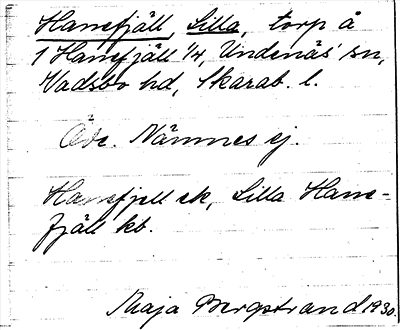 Hanefjäll, Lilla, torp å
1 Hanefjäll 1/4, Undenäs sn,
Vadsbo hd, Skarab. l.
Öde. Nämnes ej.
Hanefjell ek, Lilla Hane-
fjäll kb.
Maja Bergstrand 1930.